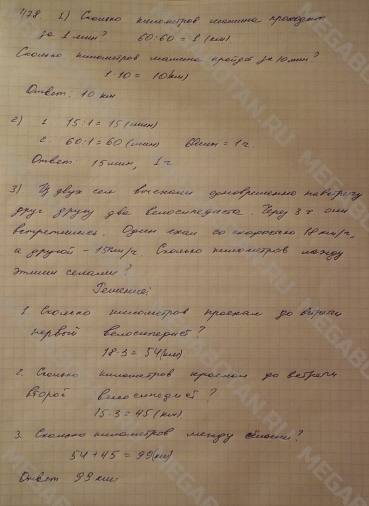 478 1) Сколько километров машина проходит
за 1 мин? 60:60 = 1 (км)
Сколько километров машина пройдёт за 10 мин?
1·10 = 10(км)
Ответ. 10 км
2) 1. 15·1 = 15 (мин)
2. 60·1 = 60 (мин) 60мин = 1ч
Ответ 15 мин, 1ч
3) Из двух сел выехали одновременно навстречу
друг другу два велосипедиста. Через 3ч они
встретились. Один ехал со скоростью 18 км/ч,
а другой - 15км/ч Сколько километров между
этими селами?
Решение:
1. Сколько километров проехал до встречи
первый велосипедист?
18·3 = 54(км)
2. Сколько километров проехал до встречи
второй велосипедист?
15·3 = 45 (км)
3. Сколько километров между сёлами?
54 + 45 = 99(км)
Ответ 99 км.